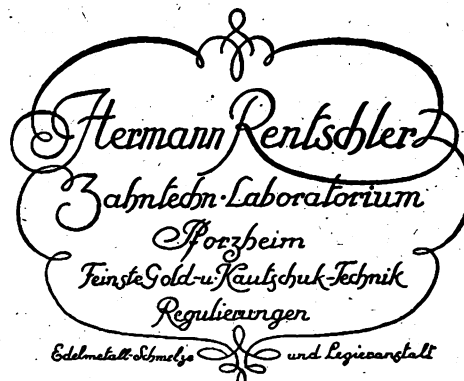 Hermann Rentschler
Zahntechn. Laboratorium
Pforzheim
Feinste Gold- u. Kautschuk-Technik
Regulierungen
Edelmetall-Schmelze und Legieranstalt